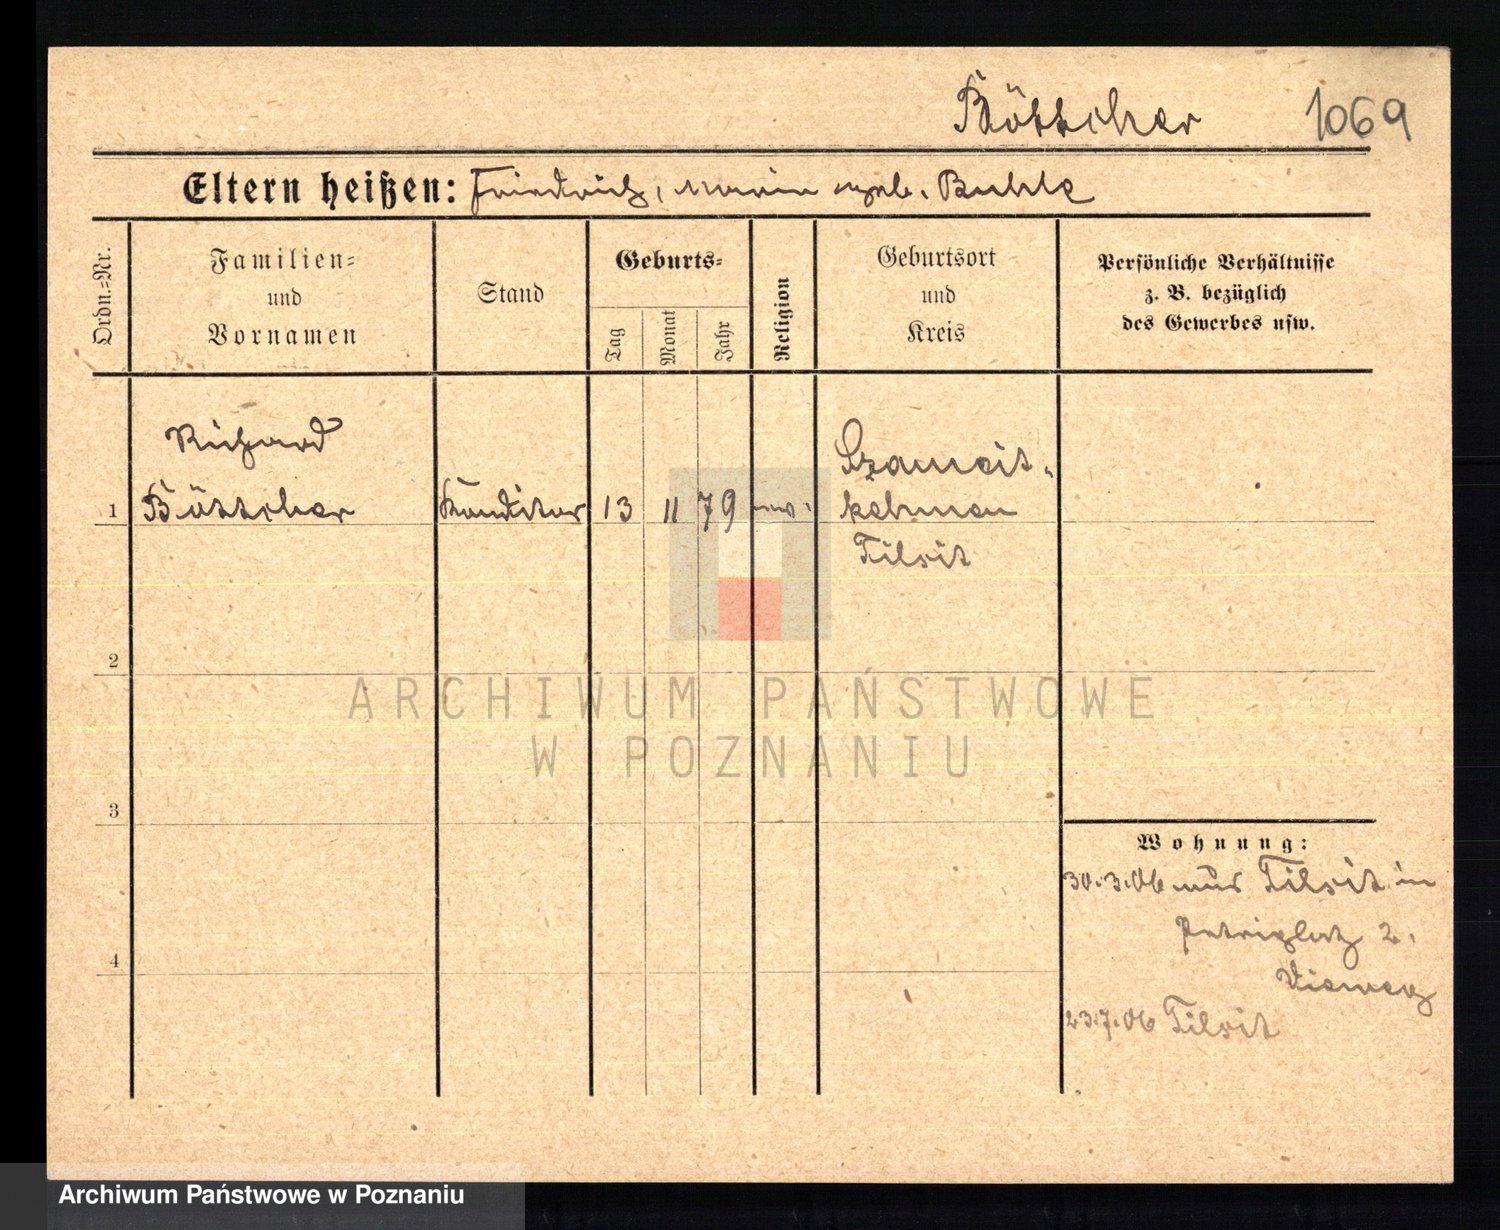 Böttcher 1069
Eltern heißen: Friedrich, Marie geb. Buhle
Ordn.-Nr.
Familien-
und
Vornamen
Stand
Geburts-
Tag
Monat
Jahr
Religion
Geburtsort
und
Kreis
Persönliche Verhältnisse
z. B. bezüglich
des Gewerbes usw.
Richard
1 Böttcher Konditor 13 11 79 ev.
Szameit-
kehmen
Tilsit
2
3
4
Wohnung:
30.3.06 aus Tilsit in
Petriplatz 2.
23.7.06 Tilsit
ARCHIWUM PAŃSTWOWE
W POZNANIU
Archiwum Państwowe w Poznaniu